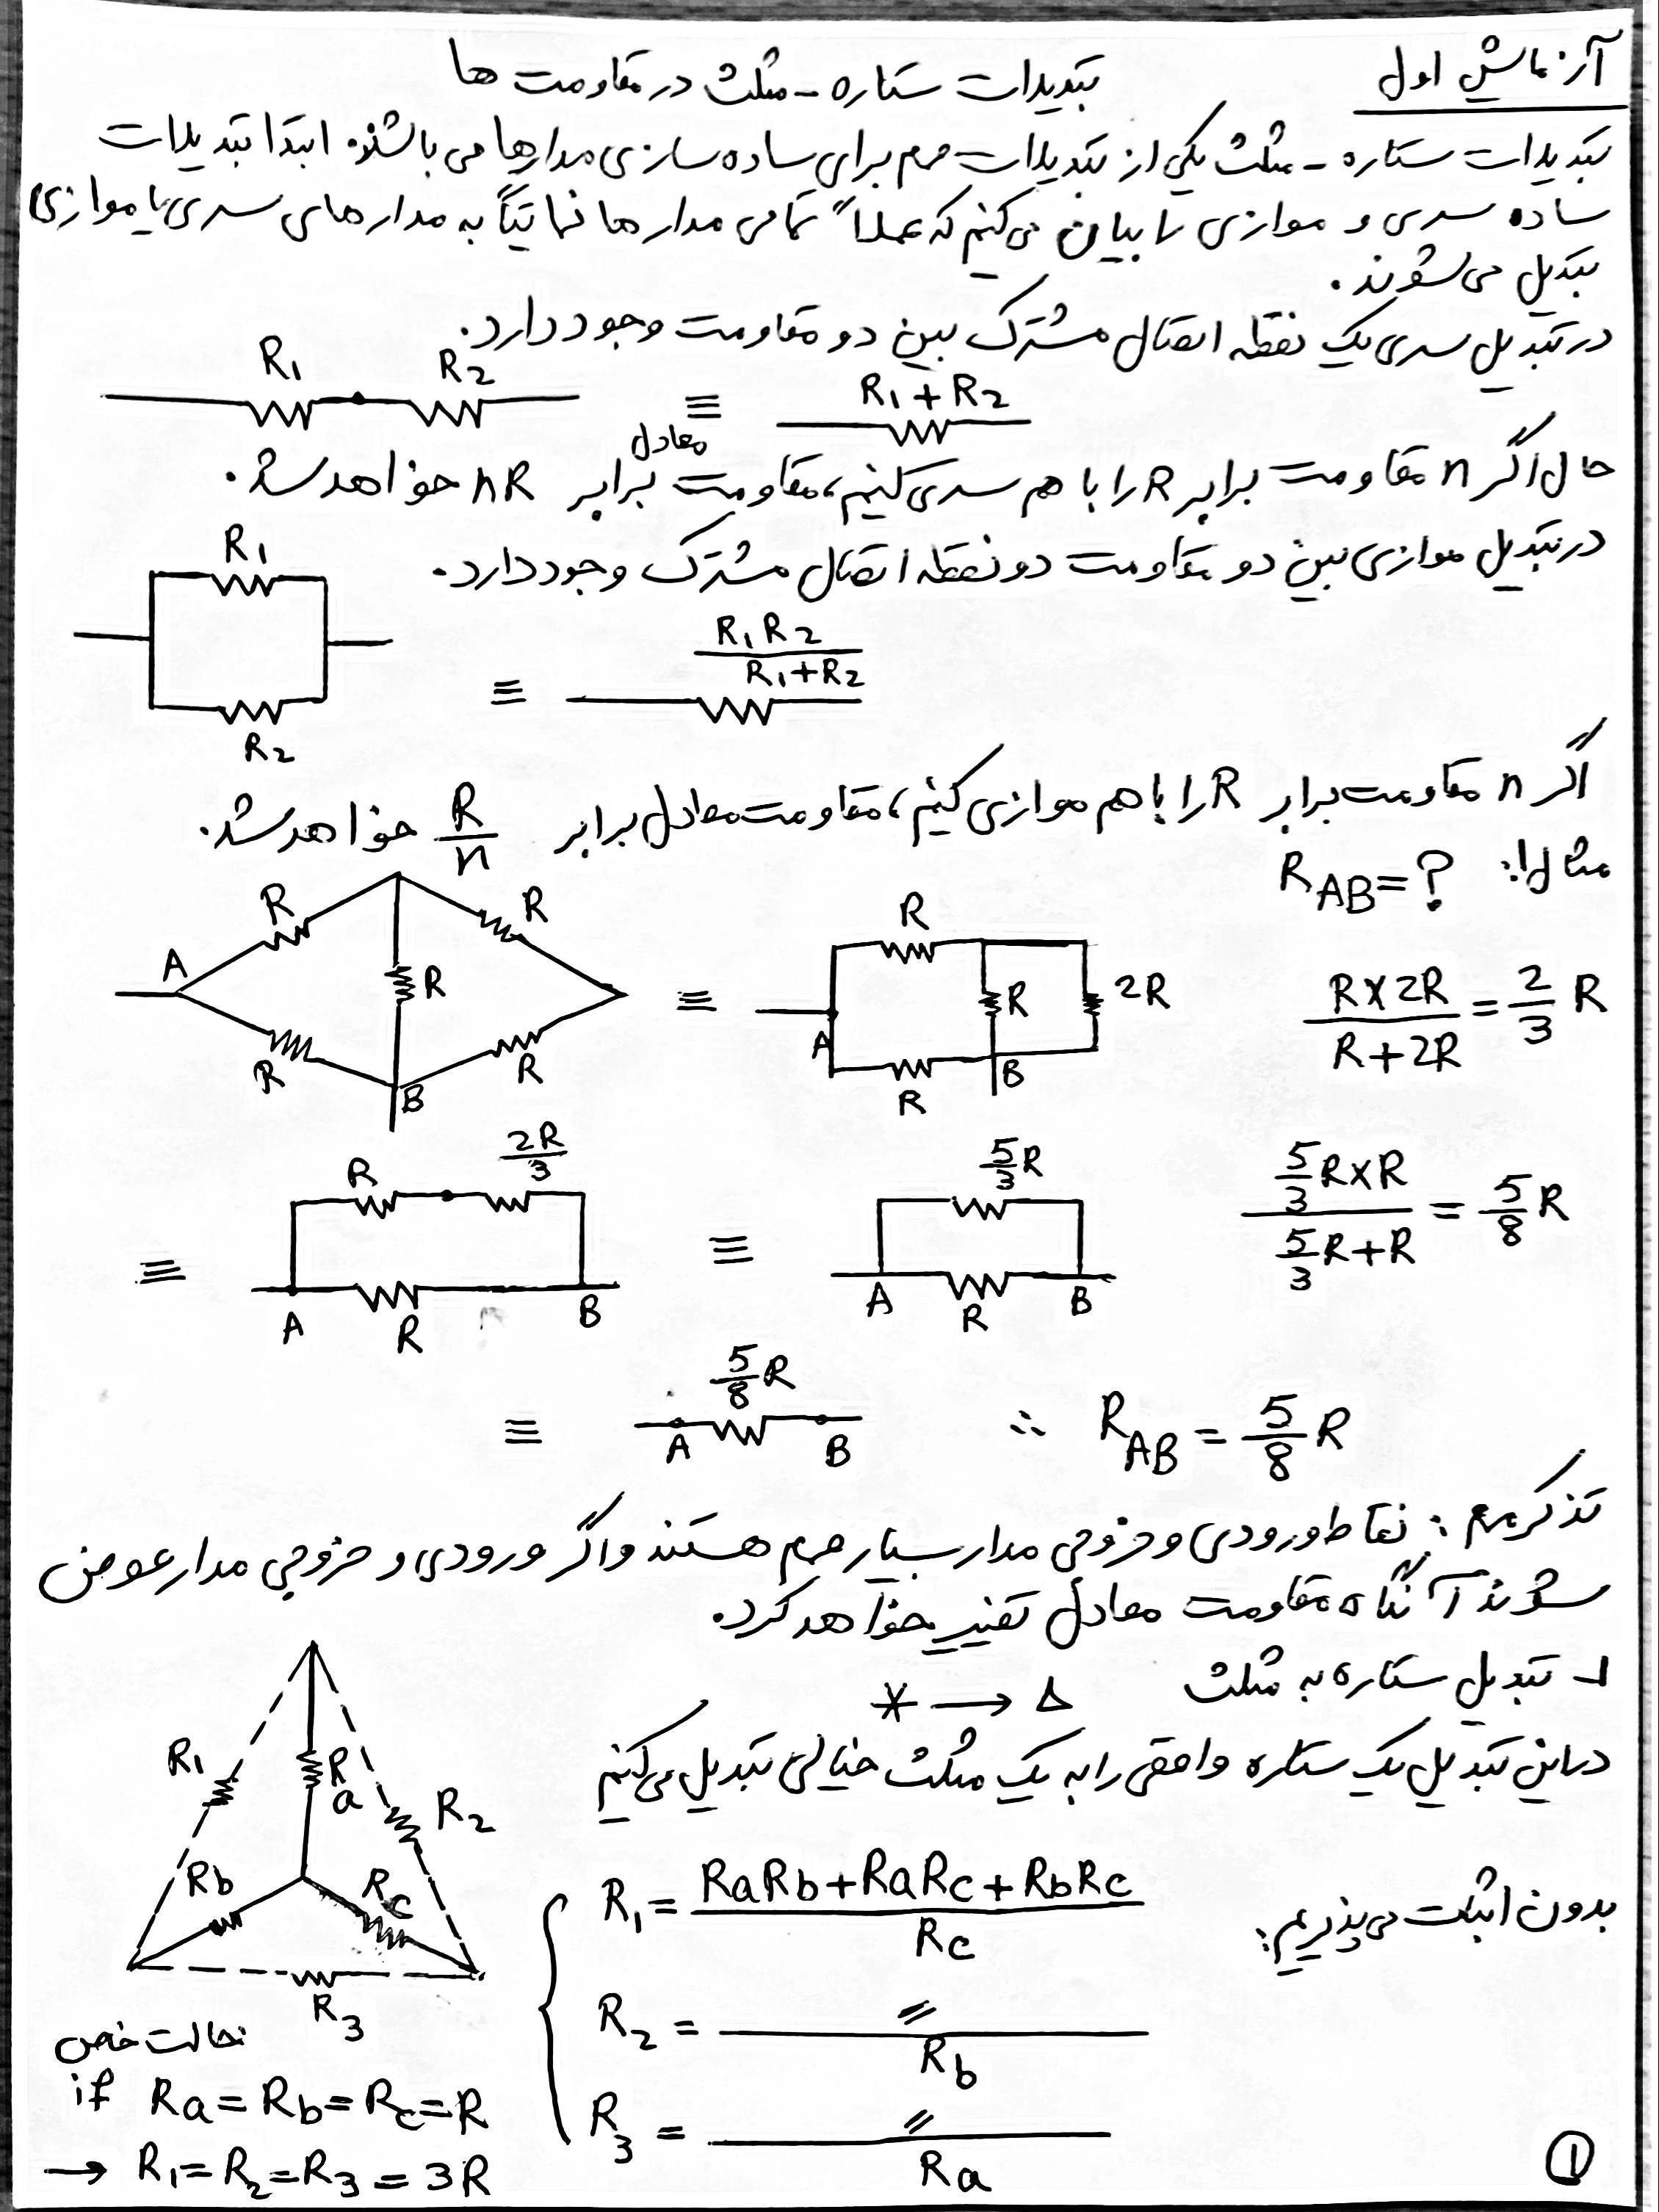 آزمایش اول
تبدیلات ستاره - مثلث در مقاومت ها
تبدیلات ستاره - مثلث یکی از تبدیلات مهم برای ساده سازی مدارها می باشند. ابتدا تبدیلات
ساده سری و موازی را بیان می کنیم که عملاً تمامی مدارها نهایتاً به مدارهای سری یا موازی
تبدیل می شوند.
در تبدیل سری یک نقطه اتصال مشترک بین دو مقاومت وجود دارد.
R1 R2 ≡ R1+R2
حال اگر n مقاومت برابر R را با هم سری کنیم، مقاومت معادل برابر nR خواهد شد.
در تبدیل موازی بین دو مقاومت دو نقطه اتصال مشترک وجود دارد.
R1
R2 ≡ R1R2 / R1+R2
اگر n مقاومت برابر R را با هم موازی کنیم، مقاومت معادل برابر R/n خواهد شد.
مثال ۱: RAB=?
R R A R R R B
≡ R R 2R A R B
R×2R / R+2R = 2/3 R
≡ R 2R/3 A R B
≡ 5/3R A R B
5/3R×R / 5/3R+R = 5/8 R
≡ 5/8R A B ∴ RAB = 5/8 R
تذکر مهم: نقاط ورودی و خروجی مدار بسیار مهم هستند و اگر ورودی و خروجی مدار عوض
شوند آنگاه مقاومت معادل تغییر خواهد کرد.
۱- تبدیل ستاره به مثلث * → Δ
در این تبدیل یک ستاره واقعی را به یک مثلث خیالی تبدیل می کنیم
بدون اثبات می پذیریم:
R1 Ra R2 Rb Rc R3
R1 = RaRb+RaRc+RbRc / Rc
R2 = 〃 / Rb
R3 = 〃 / Ra
حالت خاص
if Ra=Rb=Rc=R
→ R1=R2=R3=3R
①